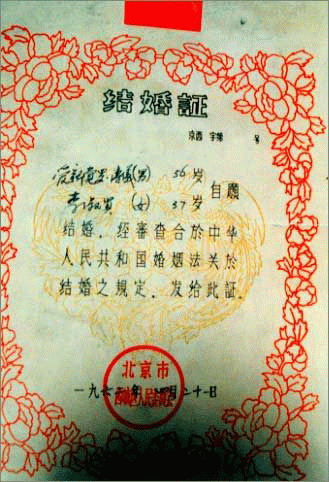 结婚証
京西 字第 号
愛新覚罗·溥儀(男) 56岁
李淑贤 (女) 37岁
自願
结婚，经審查合於中华
人民共和国婚姻法关於
结婚之規定，发给此証。
北京市
一九六二年 月二十一日